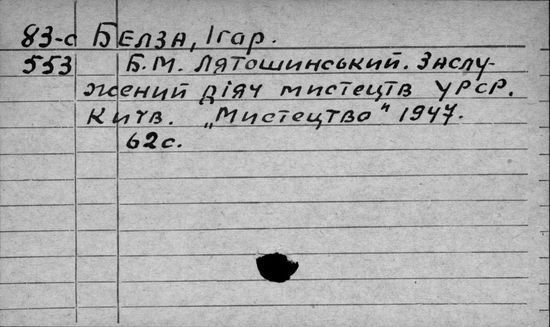 83-с Бєлза, Ігор.
553 Б.М. Лятошинський. Заслу-
жений діяч мистецтв УРСР.
Київ. „Мистецтво" 1947.
62с.